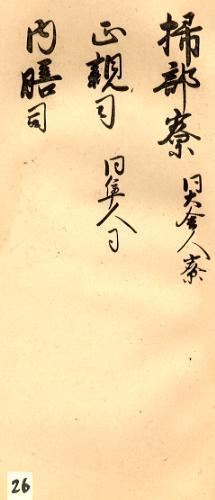 掃部寮 同大舎人寮
正親司 同隼人司
内膳司
26